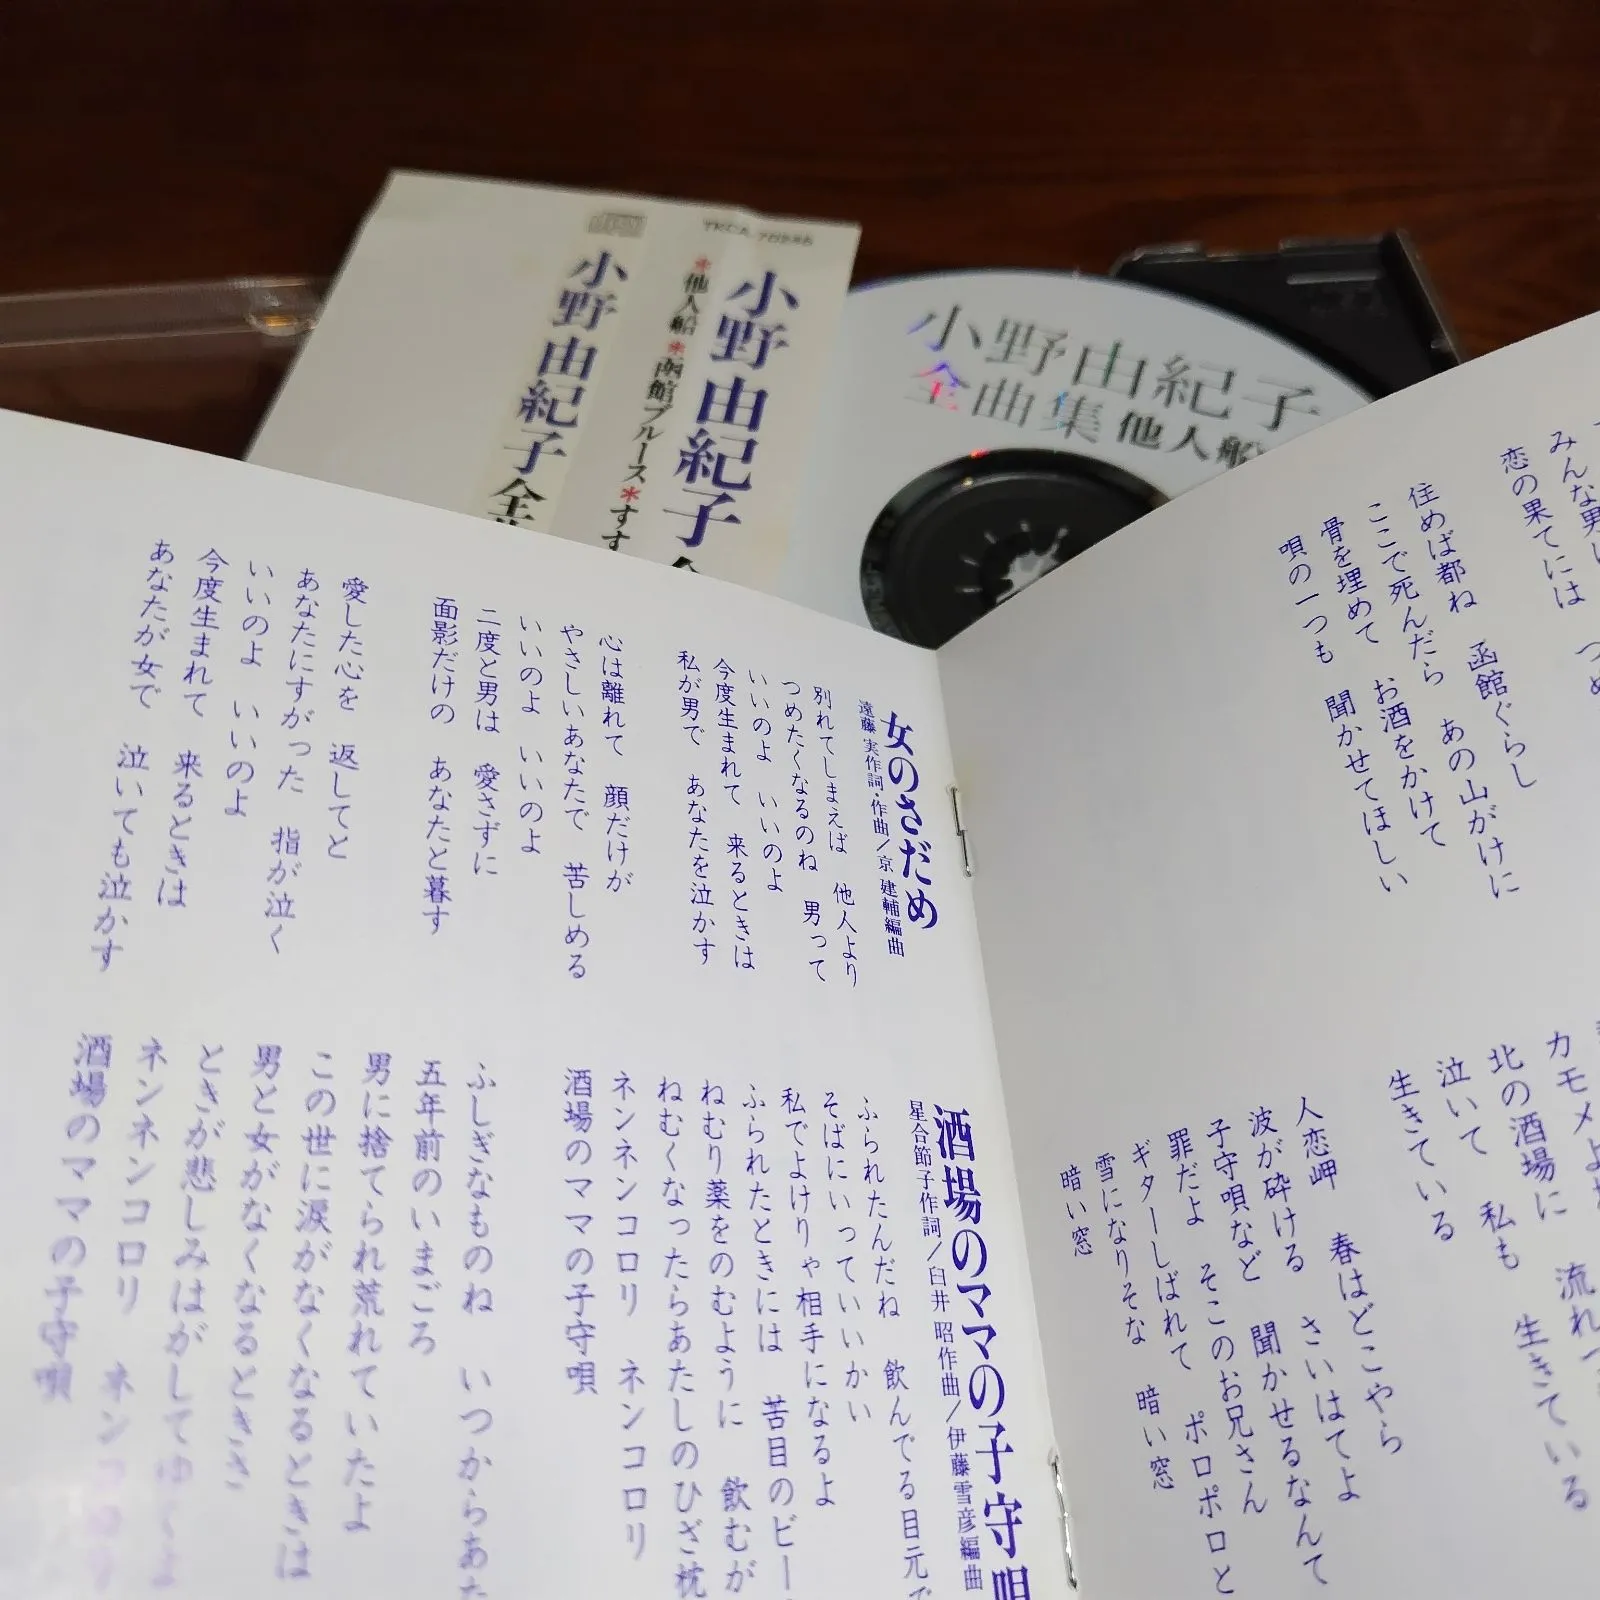 TKCA-70885
小野由紀子
*他人船*函館ブルース*すす
小野由紀子全
小野由紀子
全曲集 他人船
みんな男
恋の果てには
住めば都ね 函館ぐらし
ここで死んだら あの山がけに
骨を埋めて お酒をかけて
唄の一つも 聞かせてほしい
カモメ
北の酒場に 流れ
泣いて 私も 生きている
生きている
人恋岬 春はどこやら
波が砕ける さいはてよ
子守唄など 聞かせるなんて
罪だよ そこのお兄さん
ギターしばれて ポロポロと
雪になりそな 暗い窓
暗い窓
女のさだめ
遠藤 実作詞・作曲/京 建輔編曲
別れてしまえば 他人より
つめたくなるのね 男って
いいのよ いいのよ
今度生まれて 来るときは
私が男で あなたを泣かす
心は離れて 顔だけが
やさしいあなたで 苦しめる
いいのよ いいのよ
二度と男は 愛さずに
面影だけの あなたと暮す
愛した心を 返してと
あなたにすがった 指が泣く
いいのよ いいのよ
今度生まれて 来るときは
あなたが女で 泣いても泣かす
酒場のママの子守唄
星合節子作詞/白井 昭作曲/伊藤雪彦編曲
ふられたんだね 飲んでる目元で
そばにいっていいかい
私でよけりゃ相手になるよ
ふられたときには 苦目のビー
ねむり薬をのむように 飲むが
ねむくなったらあたしのひざ枕
ネンネンコロリ ネンコロリ
酒場のママの子守唄
ふしぎなものね いつからあた
五年前のいまごろ
男に捨てられ荒れていたよ
この世に涙がなくなるときは
男と女がなくなるときさ
ときが悲しみはがしてゆくよ
ネンネンコロリ ネンコロリ
酒場のママの子守唄